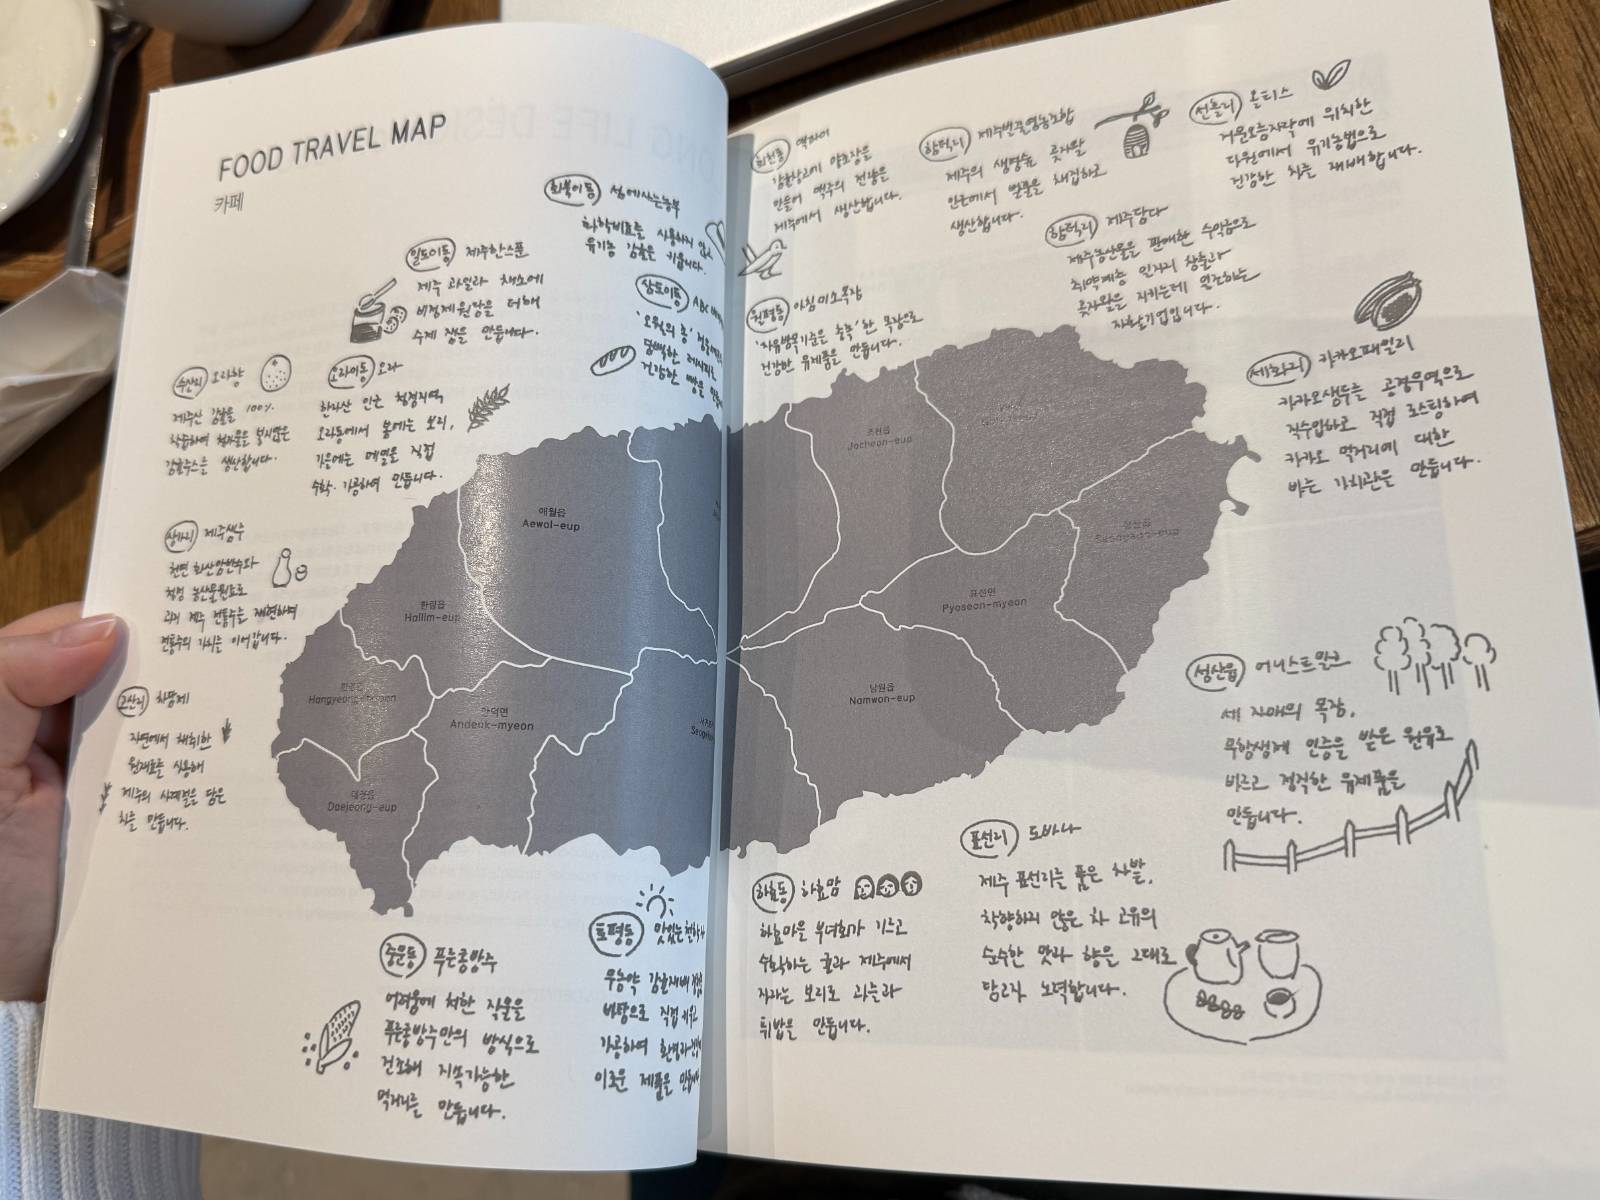 FOOD TRAVEL MAP
카페
회북이동 섬에사는농부
화학비료를 사용하지 않고
유기농 감귤을 키웁니다.
일도이동 제주한스푼
제주 과일과 채소에
비정제원당을 더해
수제 잼을 만듭니다.
삼도이동 ABC
'오월의 종'
건강한 빵을
수산리 오라향
제주산 감귤을 100%
착즙하여 첨가물을 넣지않은
감귤주스를 생산합니다.
오라이동 오라
한라산 인근 청정지역
오라동에서 봄에는 보리,
가을에는 메밀을 직접
수확·가공하여 만듭니다.
상가리 제주샘주
천연 화산암반수와
청정 농산물원료로
과거 제주 전통주를 재현하여
전통주의 가치를 이어갑니다.
고산리 차동제
자연에서 채취한
원재료를 사용해
제주의 사계절을 담은
차를 만듭니다.
중문동 푸른콩방주
어려움에 처한 작물을
푸른콩방주만의 방식으로
건조해 지속가능한
먹거리를 만듭니다.
토평동 맛있는
무농약 감귤재배
바탕으로 직접
가공하여
이로운 제품을
회천동 맥파이
감귤창고가 양조장을
만들어 맥주의 전량을
제주에서 생산합니다.
함덕리 제주벌꿀영농조합
제주의 생명숲 곶자왈
인근에서 벌꿀을 채집하고
생산합니다.
선흘리 올티스
거문오름자락에 위치한
다원에서 유기농법으로
건강한 차를 재배합니다.
함덕리 제주담다
제주농산물을 판매한 수익금으로
취약계층 일자리 창출과
곶자왈을 지키는데 일조하는
자활기업입니다.
월평동 아침미소목장
'자유방목기준은 충족'한 목장으로
건강한 유제품을 만듭니다.
세화리 카카오패밀리
카카오생두를 공정무역으로
직수입하고 직접 로스팅하여
카카오 먹거리에 대한
바른 가치관을 만듭니다.
성산읍 어니스트밀크
세 자매의 목장,
무항생제 인증을 받은 원유로
바르고 정직한 유제품을
만듭니다.
표선리 도바나
제주 표선리를 품은 차밭,
착향하지 않은 차 고유의
순수한 맛과 향을 그대로
담고자 노력합니다.
하효동 하효맘
하효마을 부녀회가 기르고
수확하는 귤과 제주에서
자라는 보리로 과즐과
튀밥을 만듭니다.
애월읍
Aewol-eup
한림읍
Hallim-eup
한경면
Hangyeong-myeon
안덕면
Andeok-myeon
대정읍
Daejeong-eup
조천읍
Jocheon-eup
성산읍
Seongsan-eup
표선면
Pyoseon-myeon
남원읍
Namwon-eup